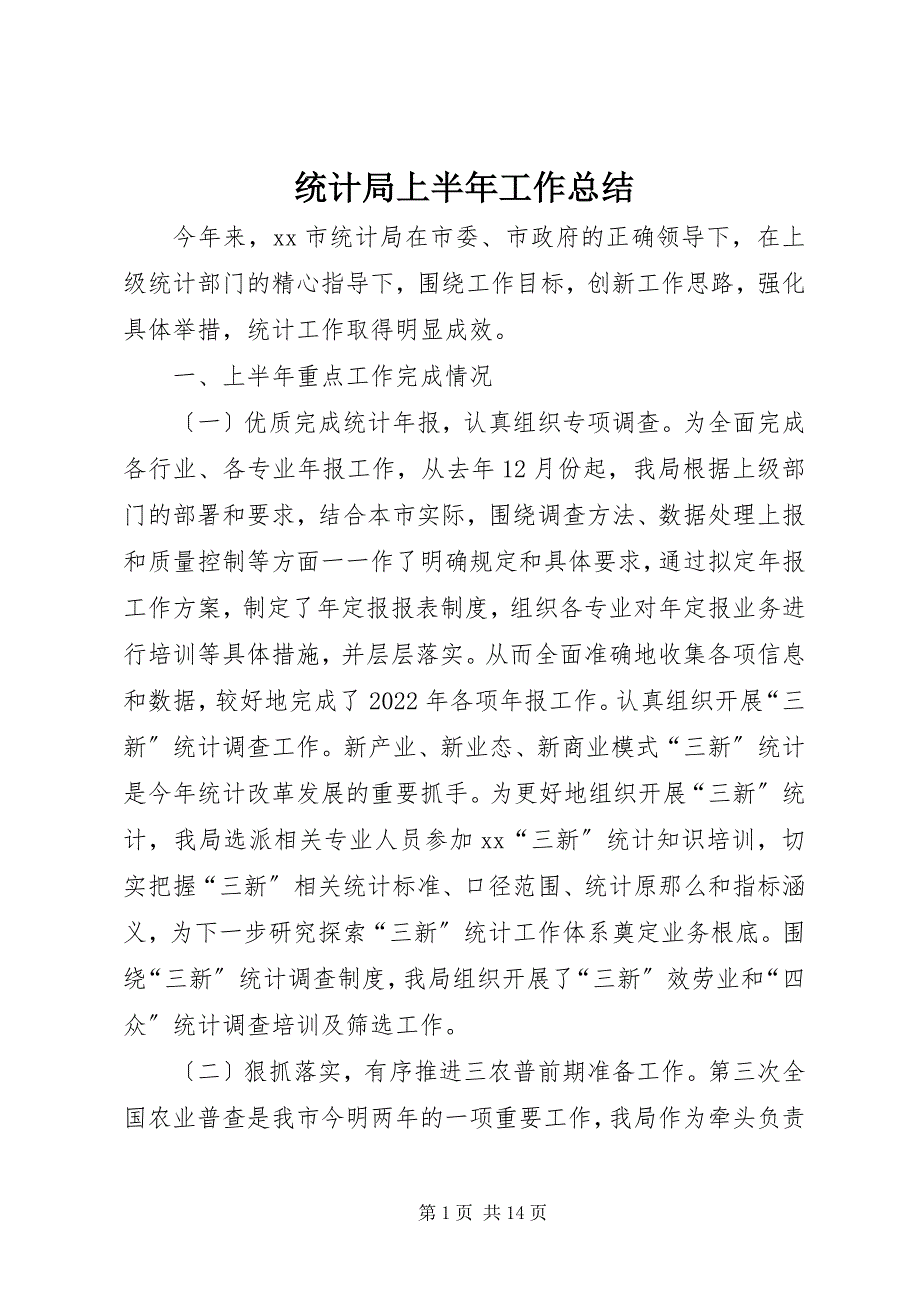 统计局上半年工作总结
今年来，xx 市统计局在市委、市政府的正确领导下，在上
级统计部门的精心指导下，围绕工作目标，创新工作思路，强化
具体举措，统计工作取得明显成效。
一、上半年重点工作完成情况
〔一〕优质完成统计年报，认真组织专项调查。为全面完成
各行业、各专业年报工作，从去年 12 月份起，我局根据上级部
门的部署和要求，结合本市实际，围绕调查方法、数据处理上报
和质量控制等方面一一作了明确规定和具体要求，通过拟定年报
工作方案，制定了年定报报表制度，组织各专业对年定报业务进
行培训等具体措施，并层层落实。从而全面准确地收集各项信息
和数据，较好地完成了 2022 年各项年报工作。认真组织开展“三
新〞统计调查工作。新产业、新业态、新商业模式“三新〞统计
是今年统计改革发展的重要抓手。为更好地组织开展“三新〞统
计，我局选派相关专业人员参加 xx“三新〞统计知识培训，切
实把握“三新〞相关统计标准、口径范围、统计原那么和指标涵
义，为下一步研究探索“三新〞统计工作体系奠定业务根底。围
绕“三新〞统计调查制度，我局组织开展了“三新〞效劳业和“四
众〞统计调查培训及筛选工作。
〔二〕狠抓落实，有序推进三农普前期准备工作。第三次全
国农业普查是我市今明两年的一项重要工作，我局作为牵头负责
第 1 页 共 14 页